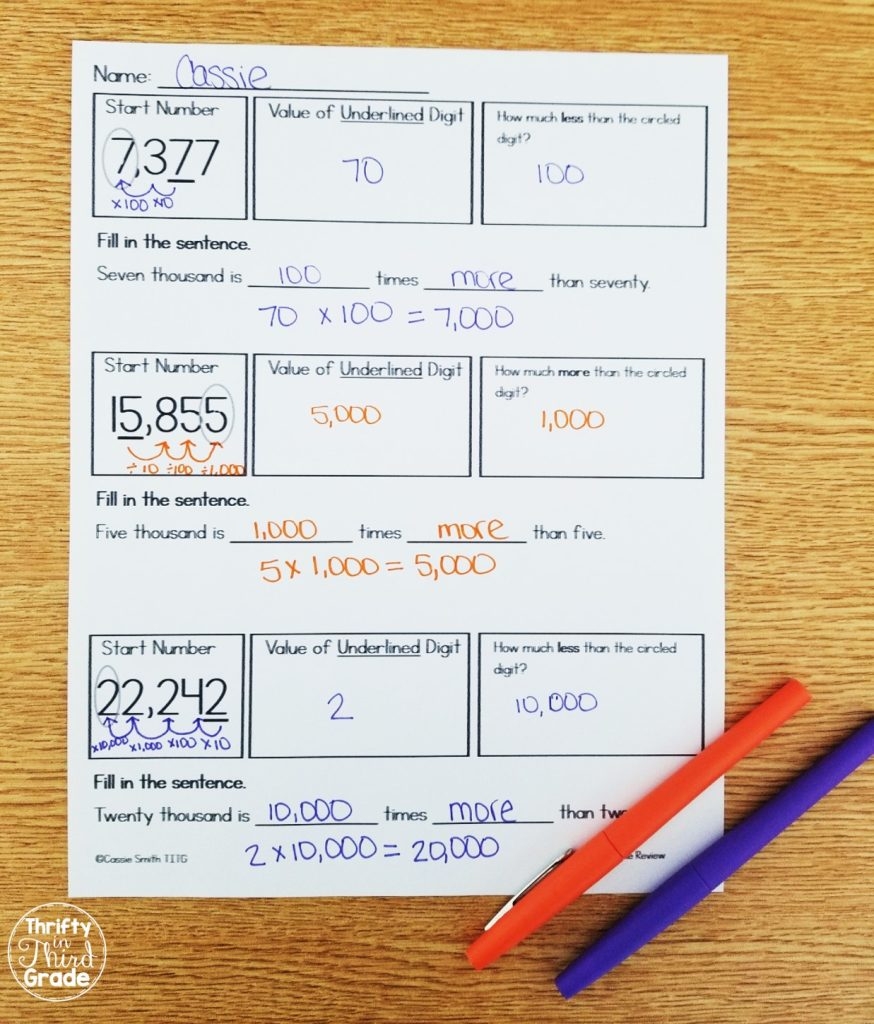 Name: Cassie
Start Number
Value of Underlined Digit
How much less than the circled
digit?
7,377
70
100
x100 x10
Fill in the sentence.
Seven thousand is 100 times more than seventy.
70 x 100 = 7,000
Start Number
Value of Underlined Digit
How much more than the circled
digit?
15,855
5,000
1,000
÷10 ÷100 ÷1,000
Fill in the sentence.
Five thousand is 1,000 times more than five.
5 x 1,000 = 5,000
Start Number
Value of Underlined Digit
How much less than the circled
digit?
22,242
2
10,000
x10,000 x1,000 x100 x10
Fill in the sentence.
Twenty thousand is 10,000 times more than
2 x 10,000 = 20,000
©Cassie Smith TITG
Review
Thrifty
in
Third
Grade